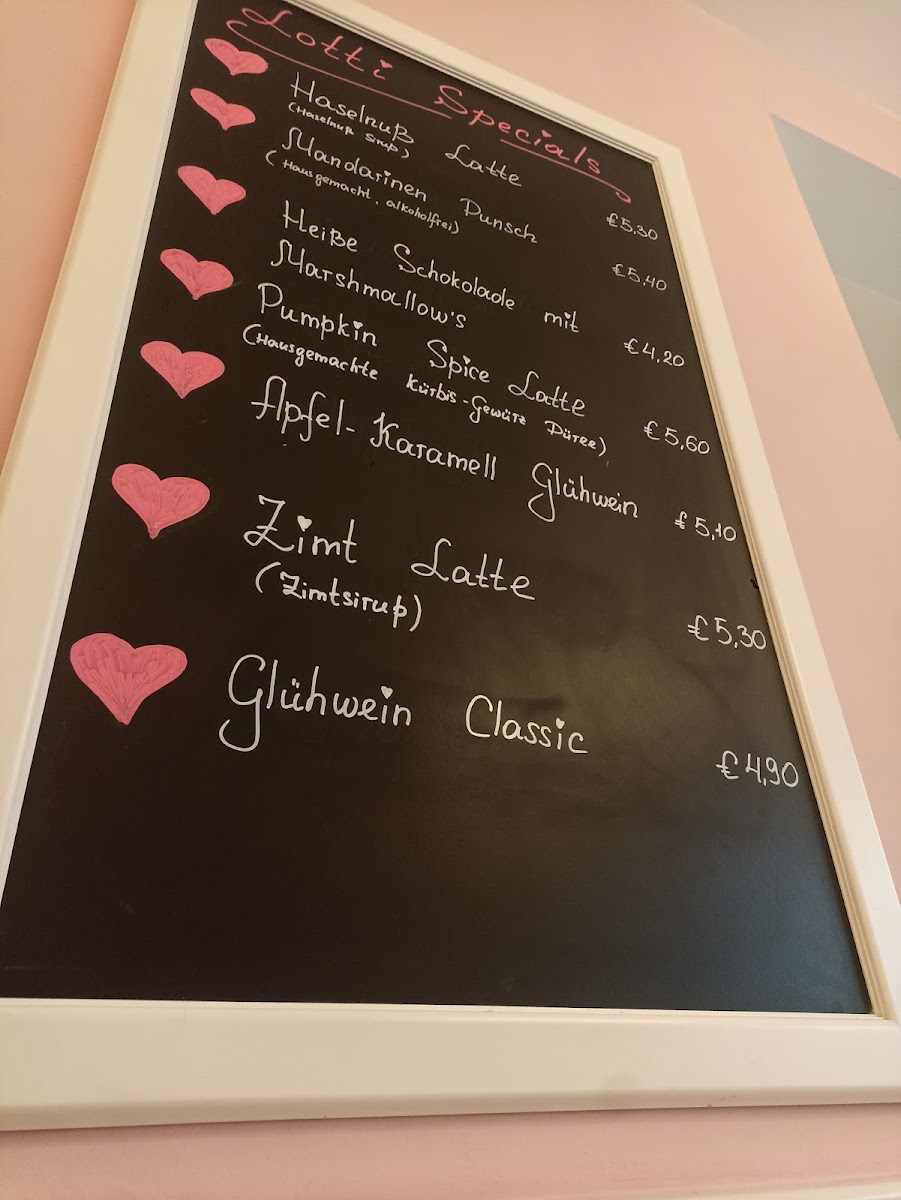 Lotti Specials
Haselnuß Latte €5,30
(Haselnuß Sirup)
Mandarinen Punsch €5,40
(Hausgemacht, alkoholfrei)
Heiße Schokolade mit
Marshmallow's €4,20
Pumpkin Spice Latte €5,60
(Hausgemachte Kürbis-Gewürz Püree)
Apfel-Karamell Glühwein €5,10
Zimt Latte €5,30
(Zimtsirup)
Glühwein Classic €4,90